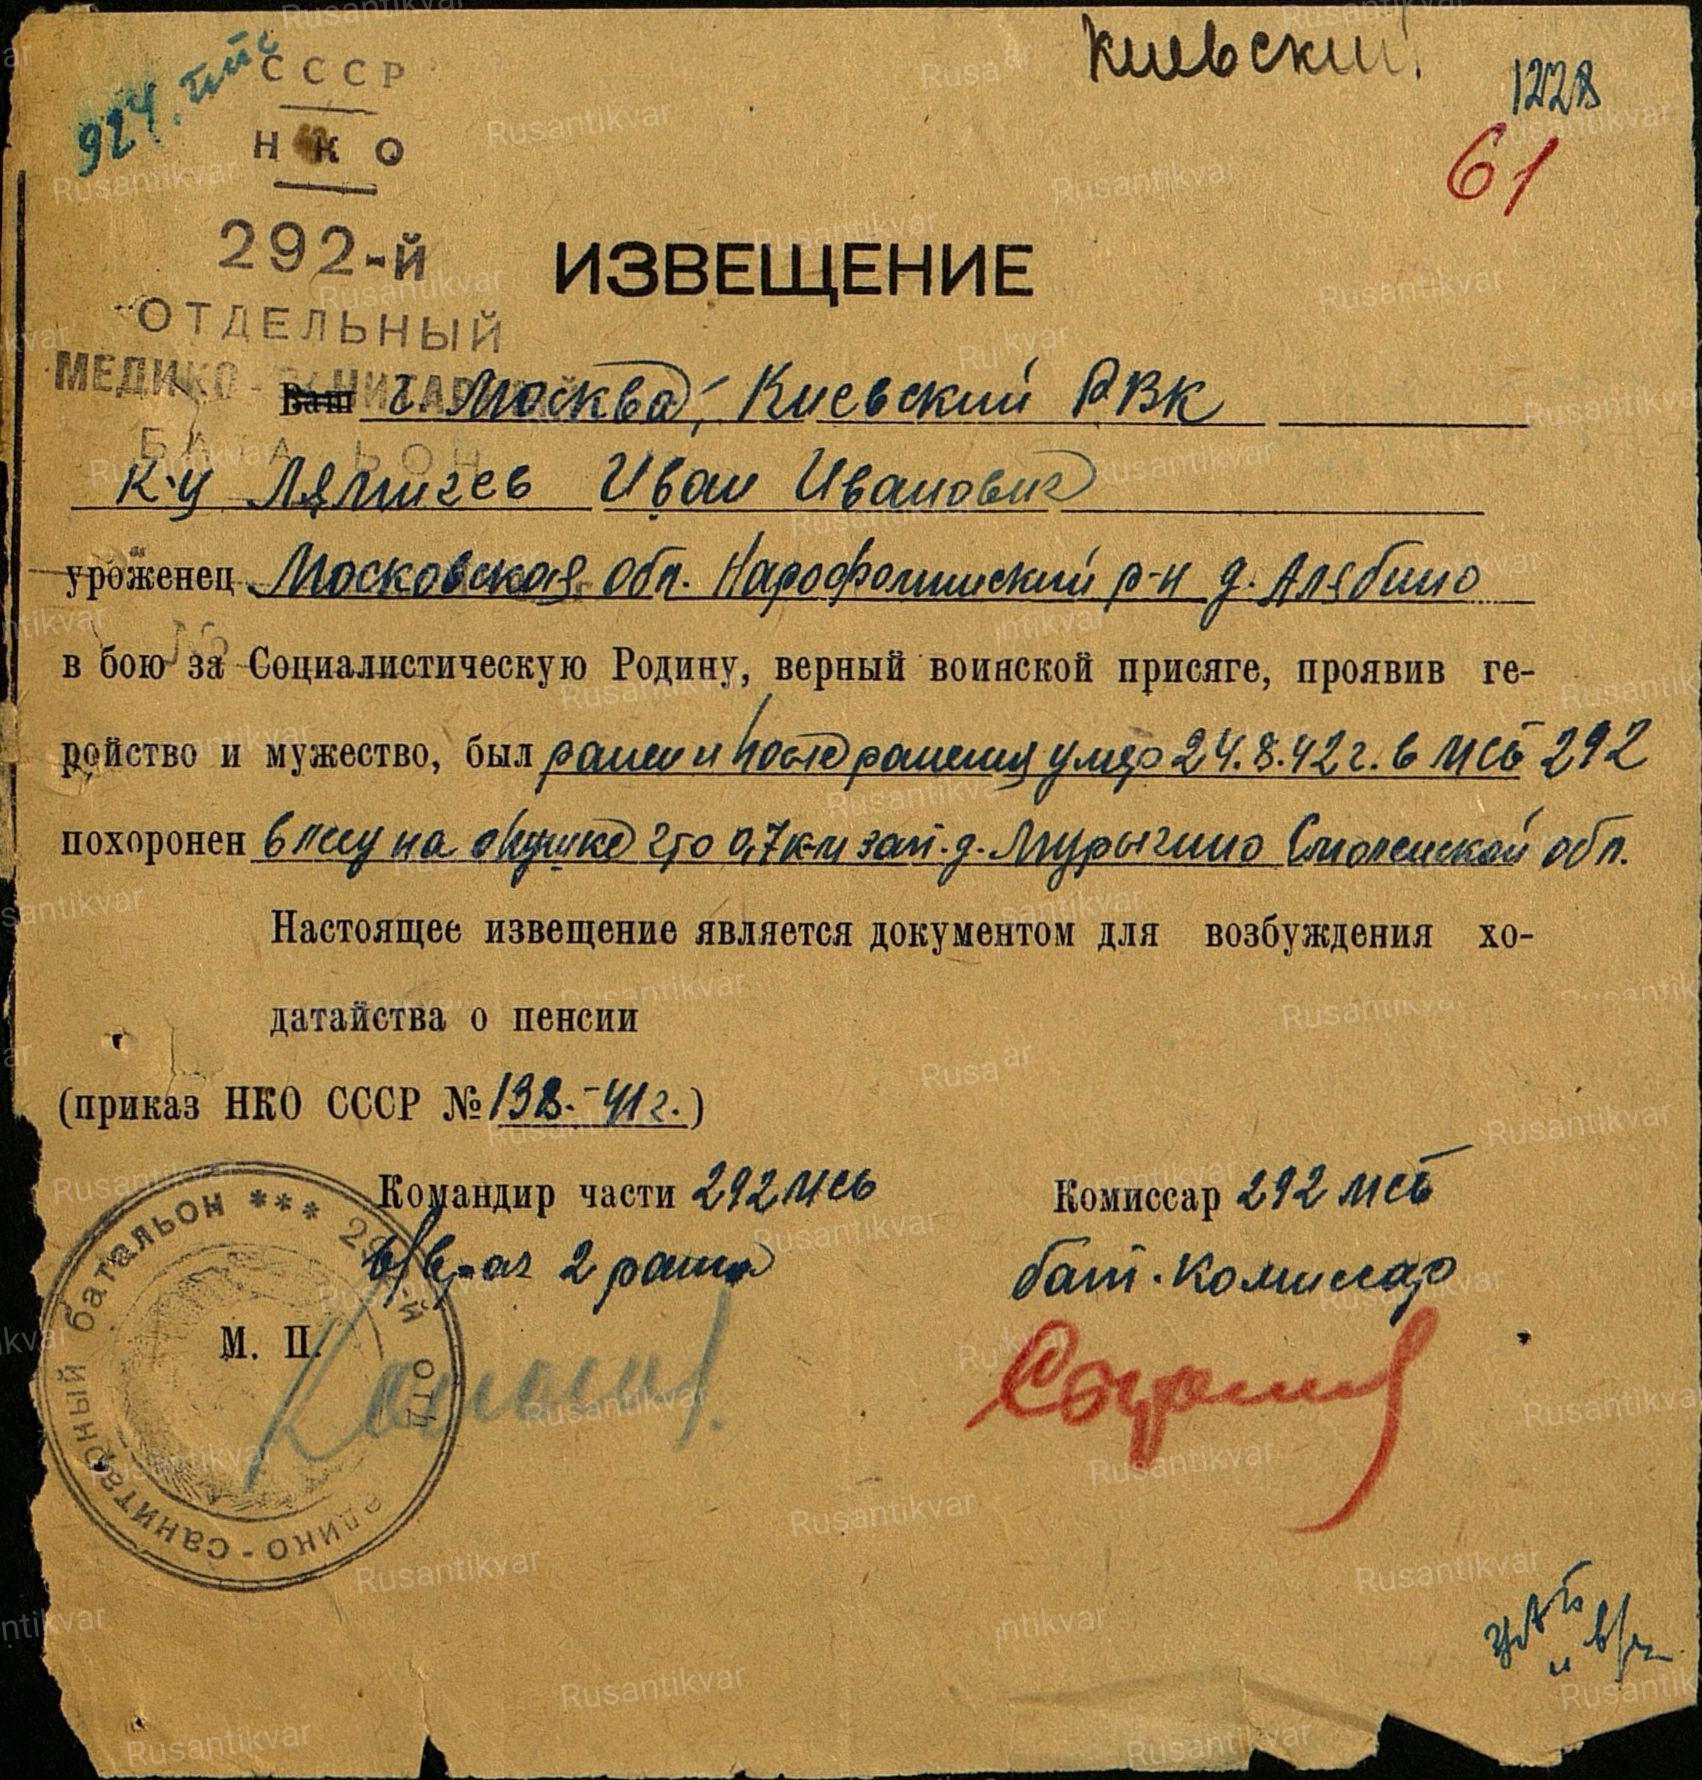 924.
Киевский
1228
61
СССР
НКО
292-й
ОТДЕЛЬНЫЙ
МЕДИКО-САНИТАРНЫЙ
БАТАЛЬОН
ИЗВЕЩЕНИЕ
Ваш г. Москва, Киевский РВК
к-у Лямичев Иван Иванович
уроженец Московская обл. Нарофоминский р-н д. Алябино
в бою за Социалистическую Родину, верный воинской присяге, проявив ге-
ройство и мужество, был ранен и после ранения умер 24.8.42 г. в МСБ 292
похоронен в лесу на опушке что 0,7 км зап. д. Мурыгино Смоленской обл.
Настоящее извещение является документом для возбуждения хо-
датайства о пенсии
(приказ НКО СССР № 138.-41 г.)
Командир части 292 МСБ
Комиссар 292 МСБ
в/врач 2 ранга
бат. комиссар
М. П.
292-й отд медико-санитарный батальон ***
Rusantikvar